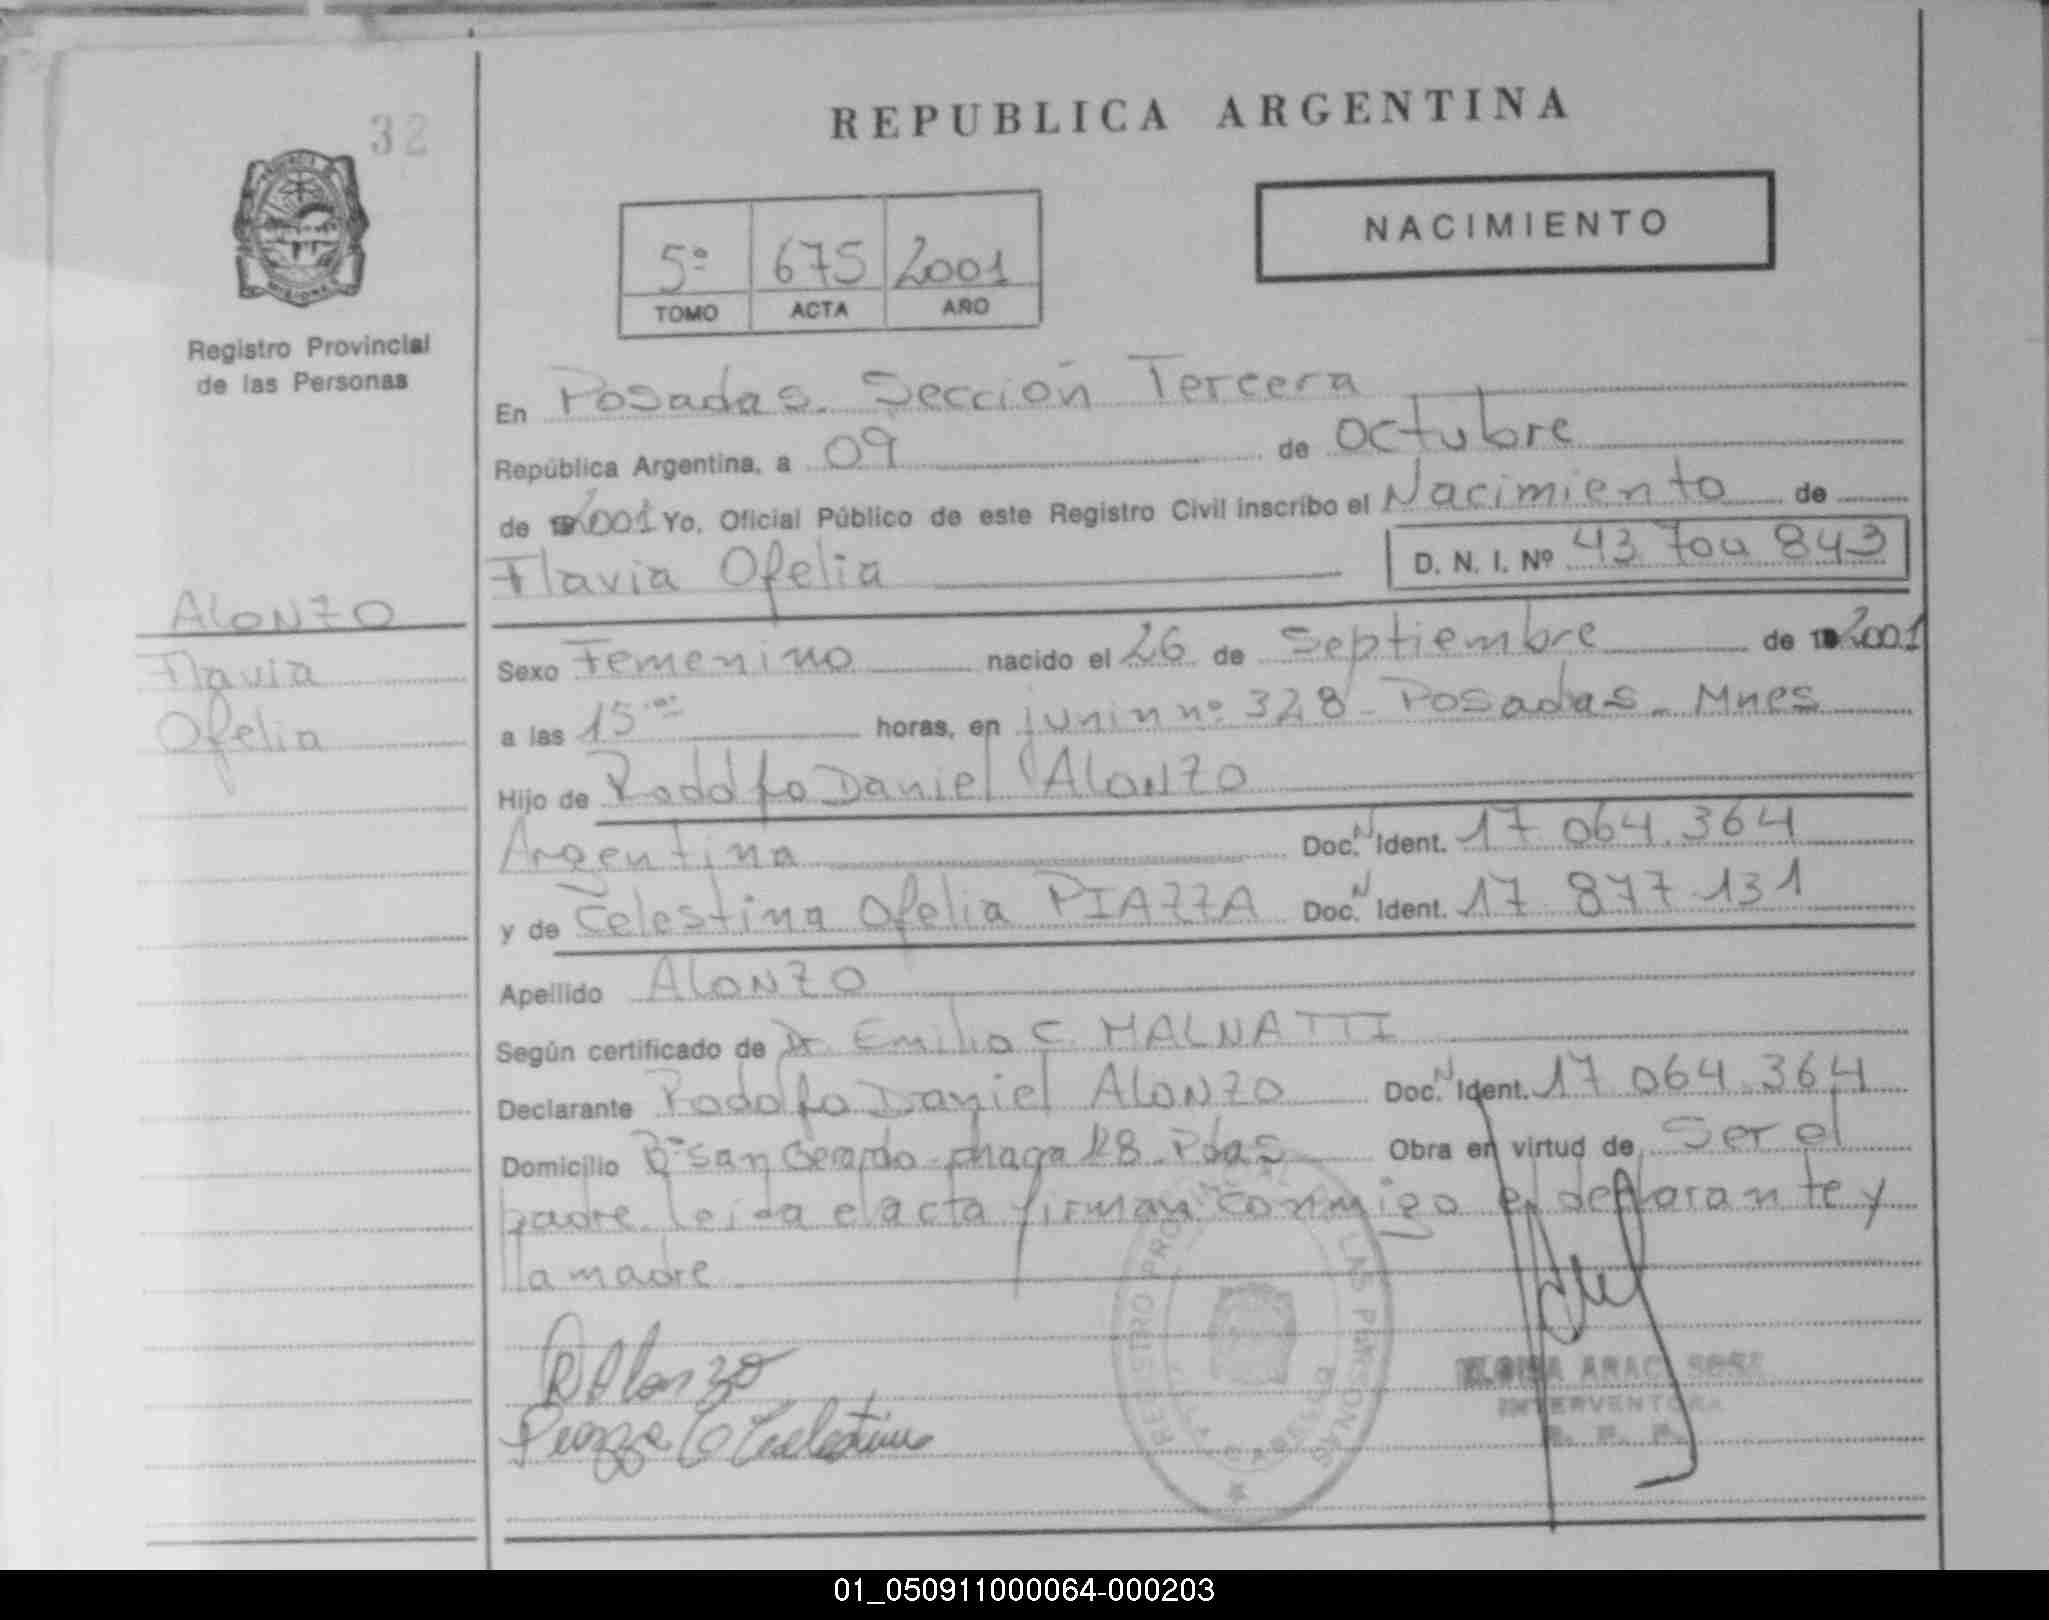 32
REPUBLICA ARGENTINA
NACIMIENTO
5º 675 2001
TOMO ACTA AÑO
Registro Provincial
de las Personas
En Posadas. Sección Tercera
República Argentina, a 09 de Octubre
de 2001 Yo, Oficial Público de este Registro Civil inscribo el Nacimiento de
Flavia Ofelia D. N. I. Nº 43 704 843
ALONZO
Flavia
Ofelia
Sexo Femenino nacido el 26 de Septiembre de 2001
a las 15 horas, en junin nº 328 - Posadas - Mnes
Hijo de Rodolfo Daniel ALONZO
Argentina Doc. N Ident. 17 064.364
y de Celestina Ofelia PIAZZA Doc. N Ident. 17 877 131
Apellido ALONZO
Según certificado de Dr. Emilio C. MALNATTI
Declarante Rodolfo Daniel ALONZO Doc. N Ident. 17 064.364
Domicilio Bº San Gerardo 128 Pdas Obra en virtud de Ser el
padre. leida el acta firman conmigo el declarante y
la madre
RAlonzo
Piazza O Celestina
REGISTRO PROVINCIAL DE LAS PERSONAS
INTERVENTORA
R. P. P.
01_050911000064-000203